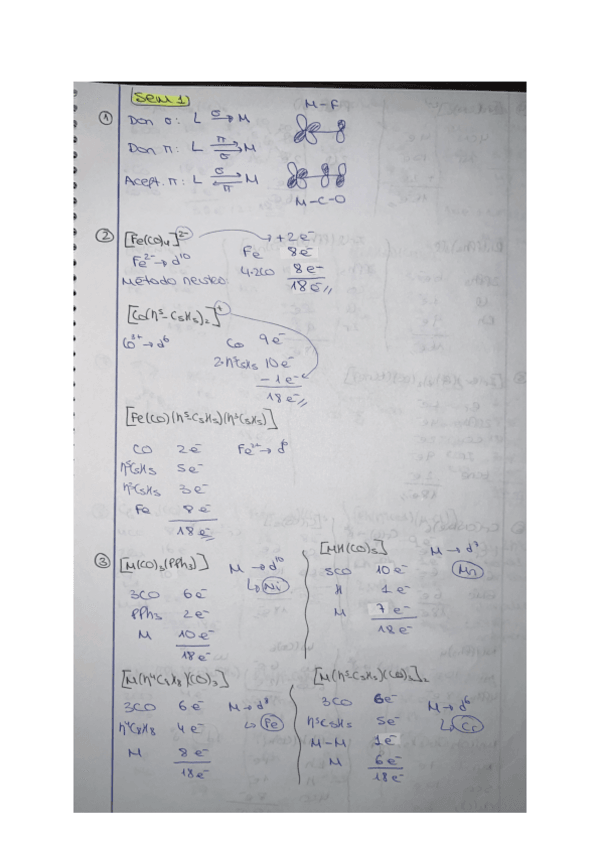 Sem 1)
① Don σ: L σ→ M
M-F
Don π: L π⇌σ M
Acept. π: L σ⇌π M
M-C-O
② [Fe(CO)₄]²⁻ → +2e⁻
Fe²⁻ → d¹⁰ Fe 8e⁻
Método neutro: 4·2CO 8e⁻
18e⁻//
[Co(η⁵-C₅H₅)₂]⁺
Co³⁺ → d⁶ Co 9e⁻
2·η⁵C₅H₅ 10e⁻
-1e⁻
18e⁻//
[Fe(CO)(η⁵-C₅H₅)(η³C₃H₅)]
CO 2e⁻ Fe²⁺ → d⁶
η⁵C₅H₅ 5e⁻
3e⁻
Fe 8e⁻
18e⁻
③ [M(CO)₃(PPh₃)] M → d¹⁰
↳ Ni
3CO 6e⁻
PPh₃ 2e⁻
M 10e⁻
18e⁻
[MH(CO)₅] M → d⁷
5CO 10e⁻ Mn
H 1e⁻
M 7e⁻
18e⁻
[M(η⁴C₄H₈)(CO)₃]
3CO 6e⁻ M → d⁸
4e⁻ ↳ Fe
M 8e⁻
18e⁻
[M(η⁵-C₅H₅)(CO)₃]₂
3CO 6e⁻ M → d⁶
η⁵C₅H₅ 5e⁻ ↳ Cr
M-M 1e⁻
M 6e⁻
18e⁻